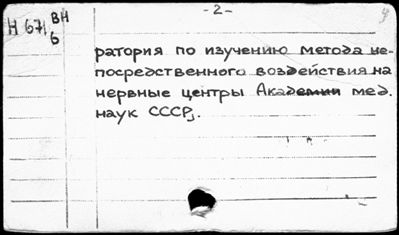 -2-
Н 67/ВН
6
ратория по изучению метода не-
посредственного воздействия на
нервные центры Академии мед.
наук СССР).